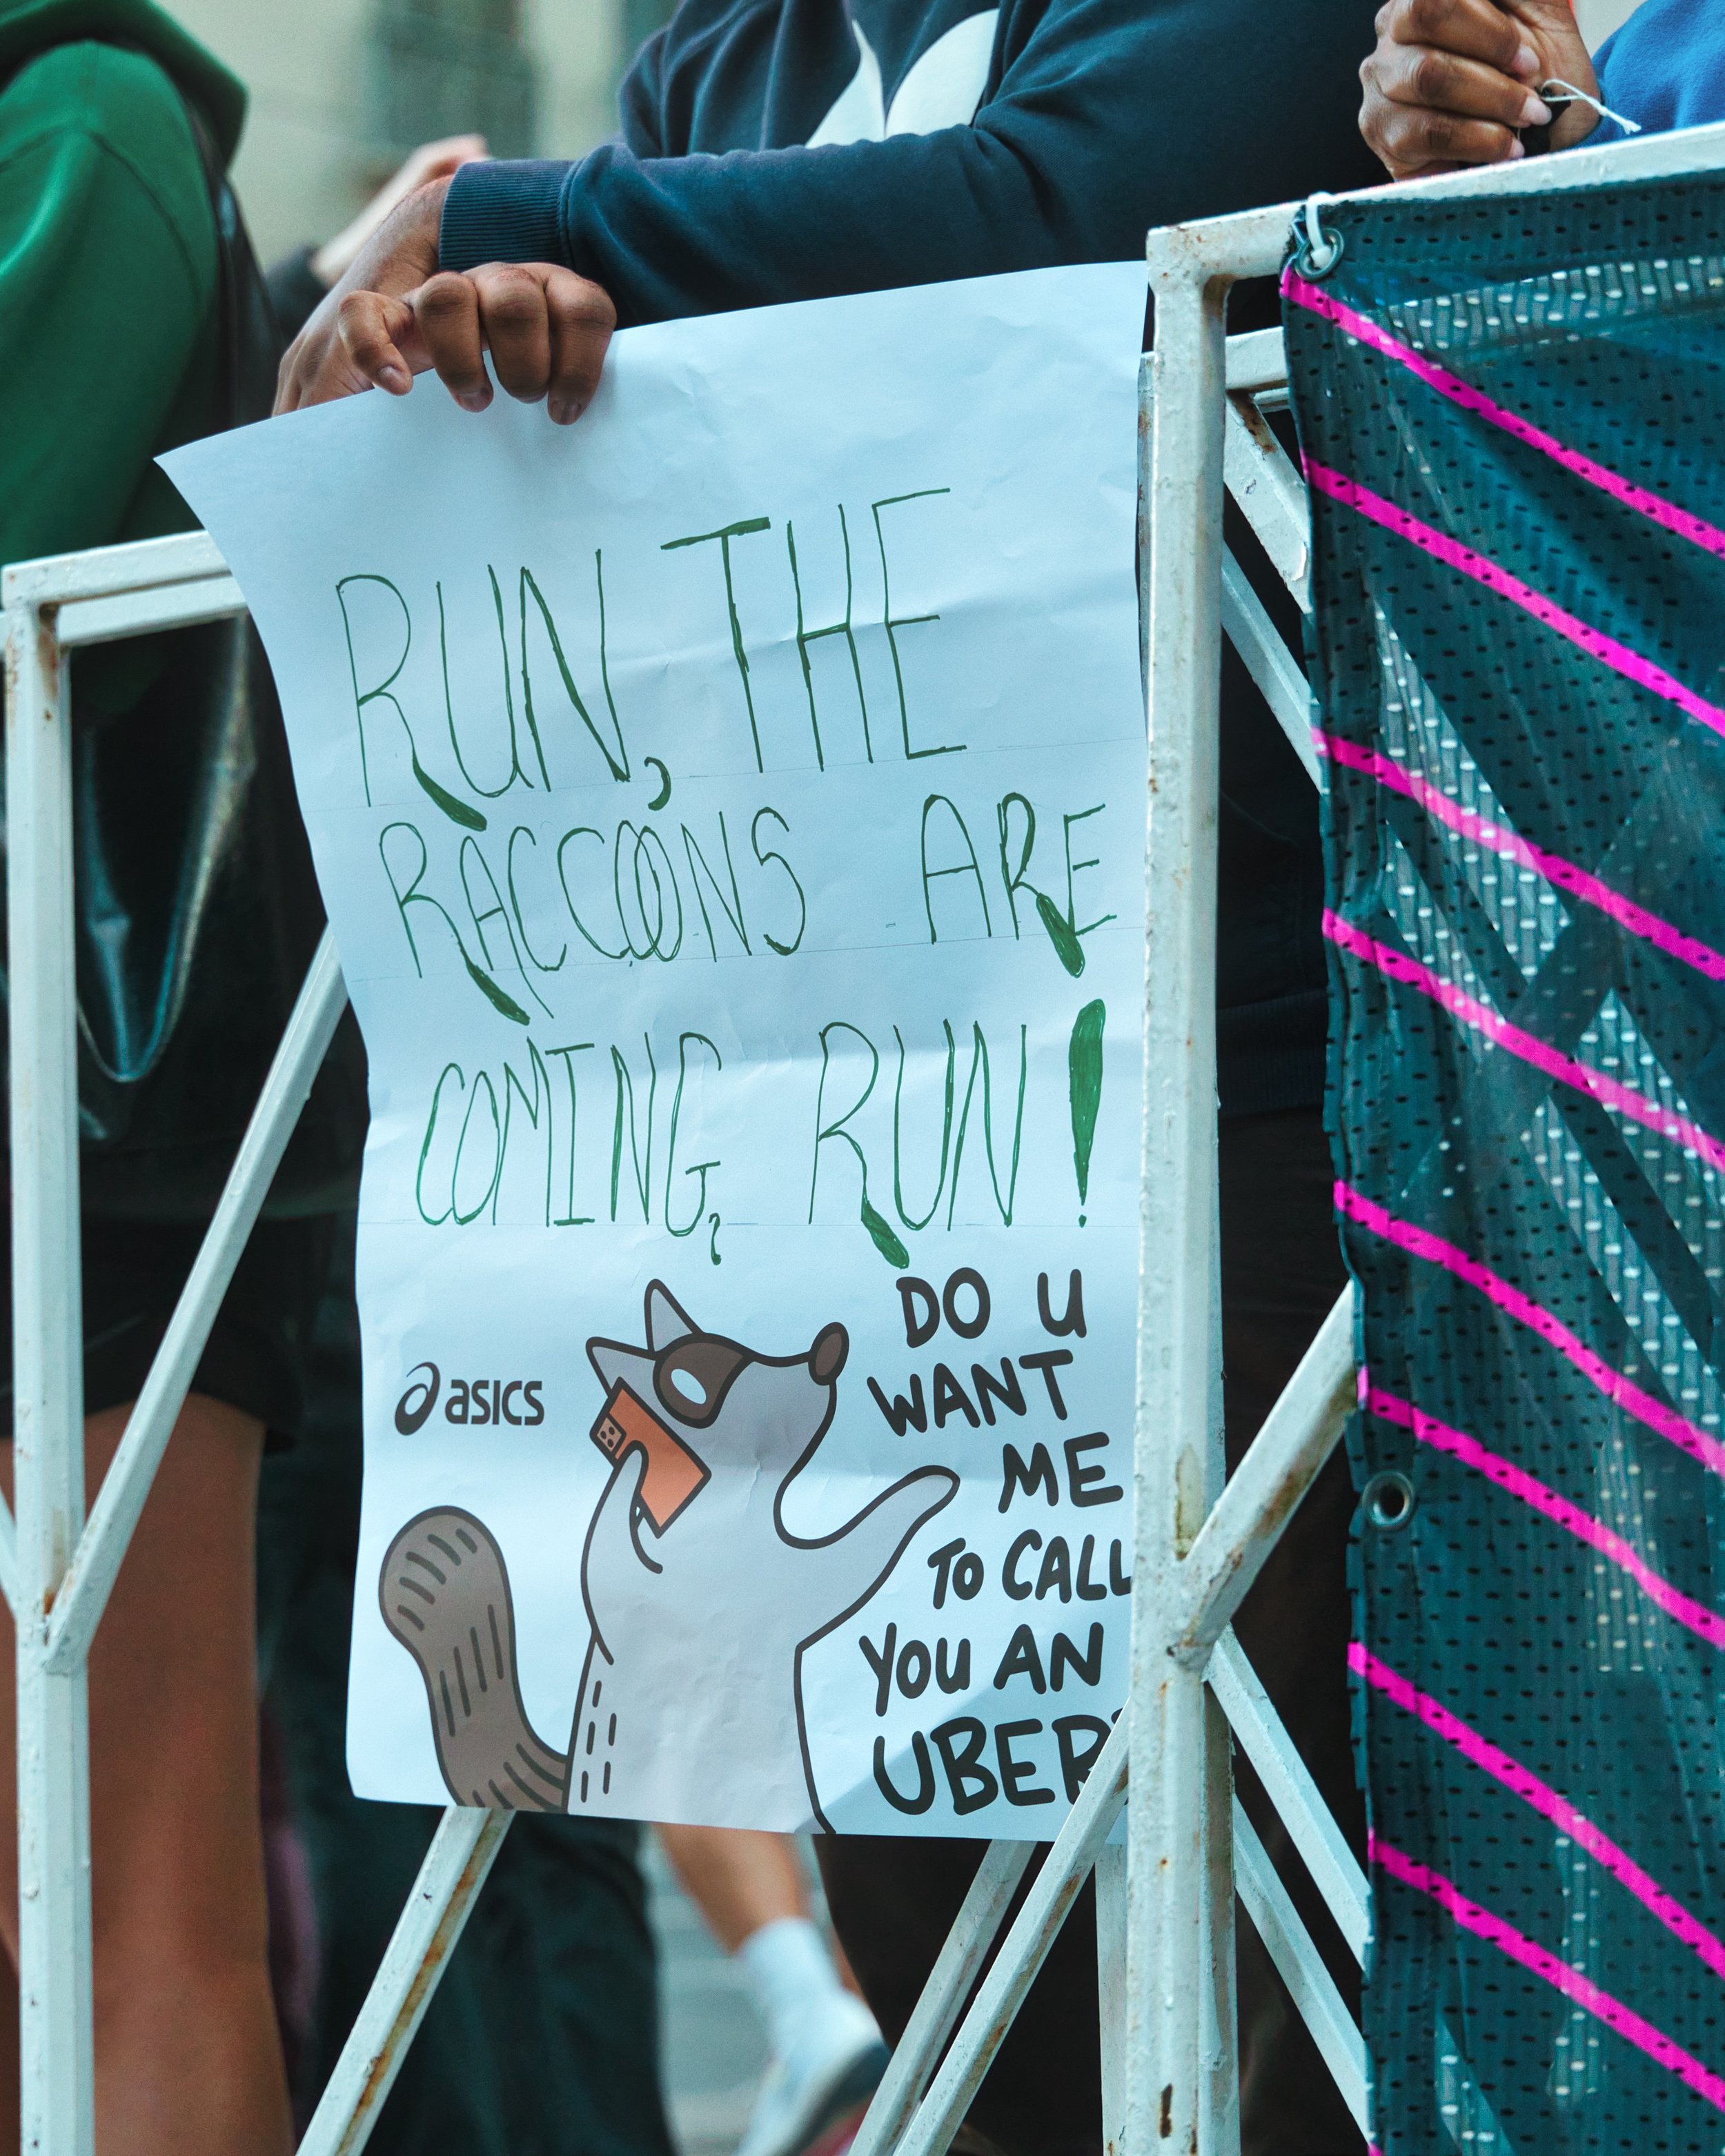 RUN, THE
RACCOONS ARE
COMING, RUN!
asics
DO U
WANT
ME
TO CALL
YOU AN
UBER